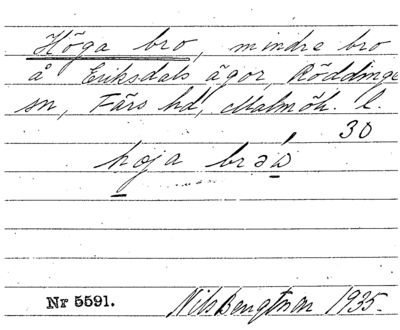 Höga bro, mindre bro
å Eriksdals ägor, Röddinge
sn, Färs hd, Malmöh. l.
30
Nr 5591.
Nils Bengtsson 1935.